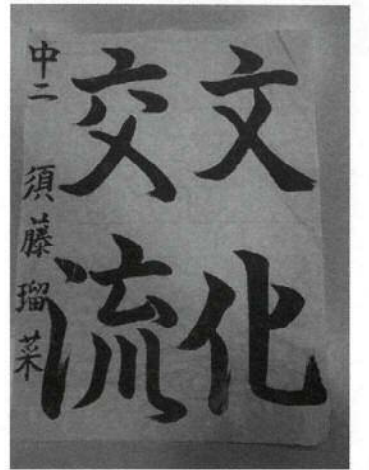 文化
交流
中二 須藤瑠菜